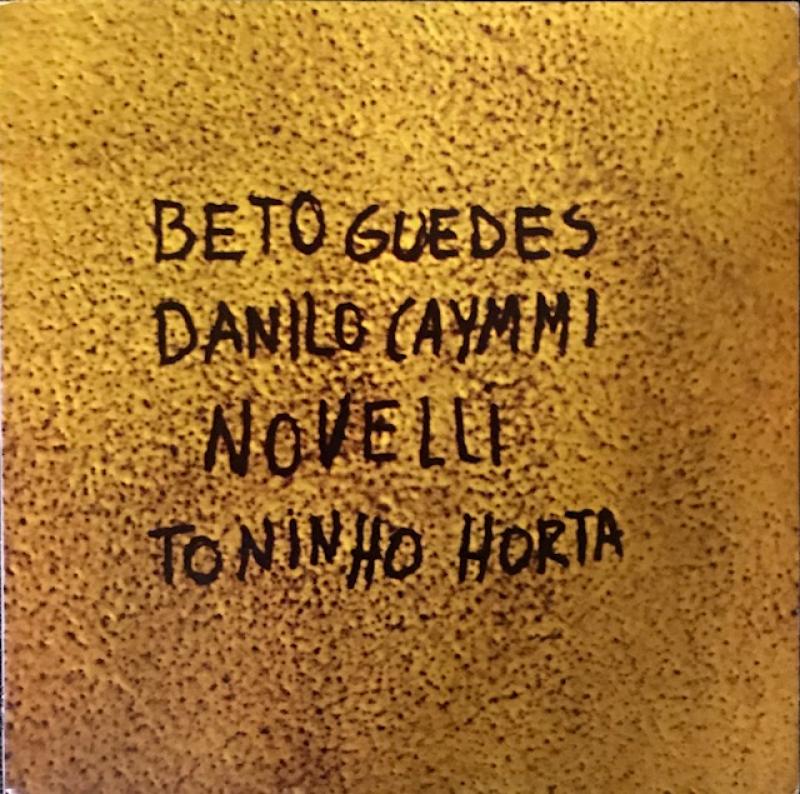 BETO GUEDES
DANILO CAYMMi
NOVELLi
TONiNHO HORTA